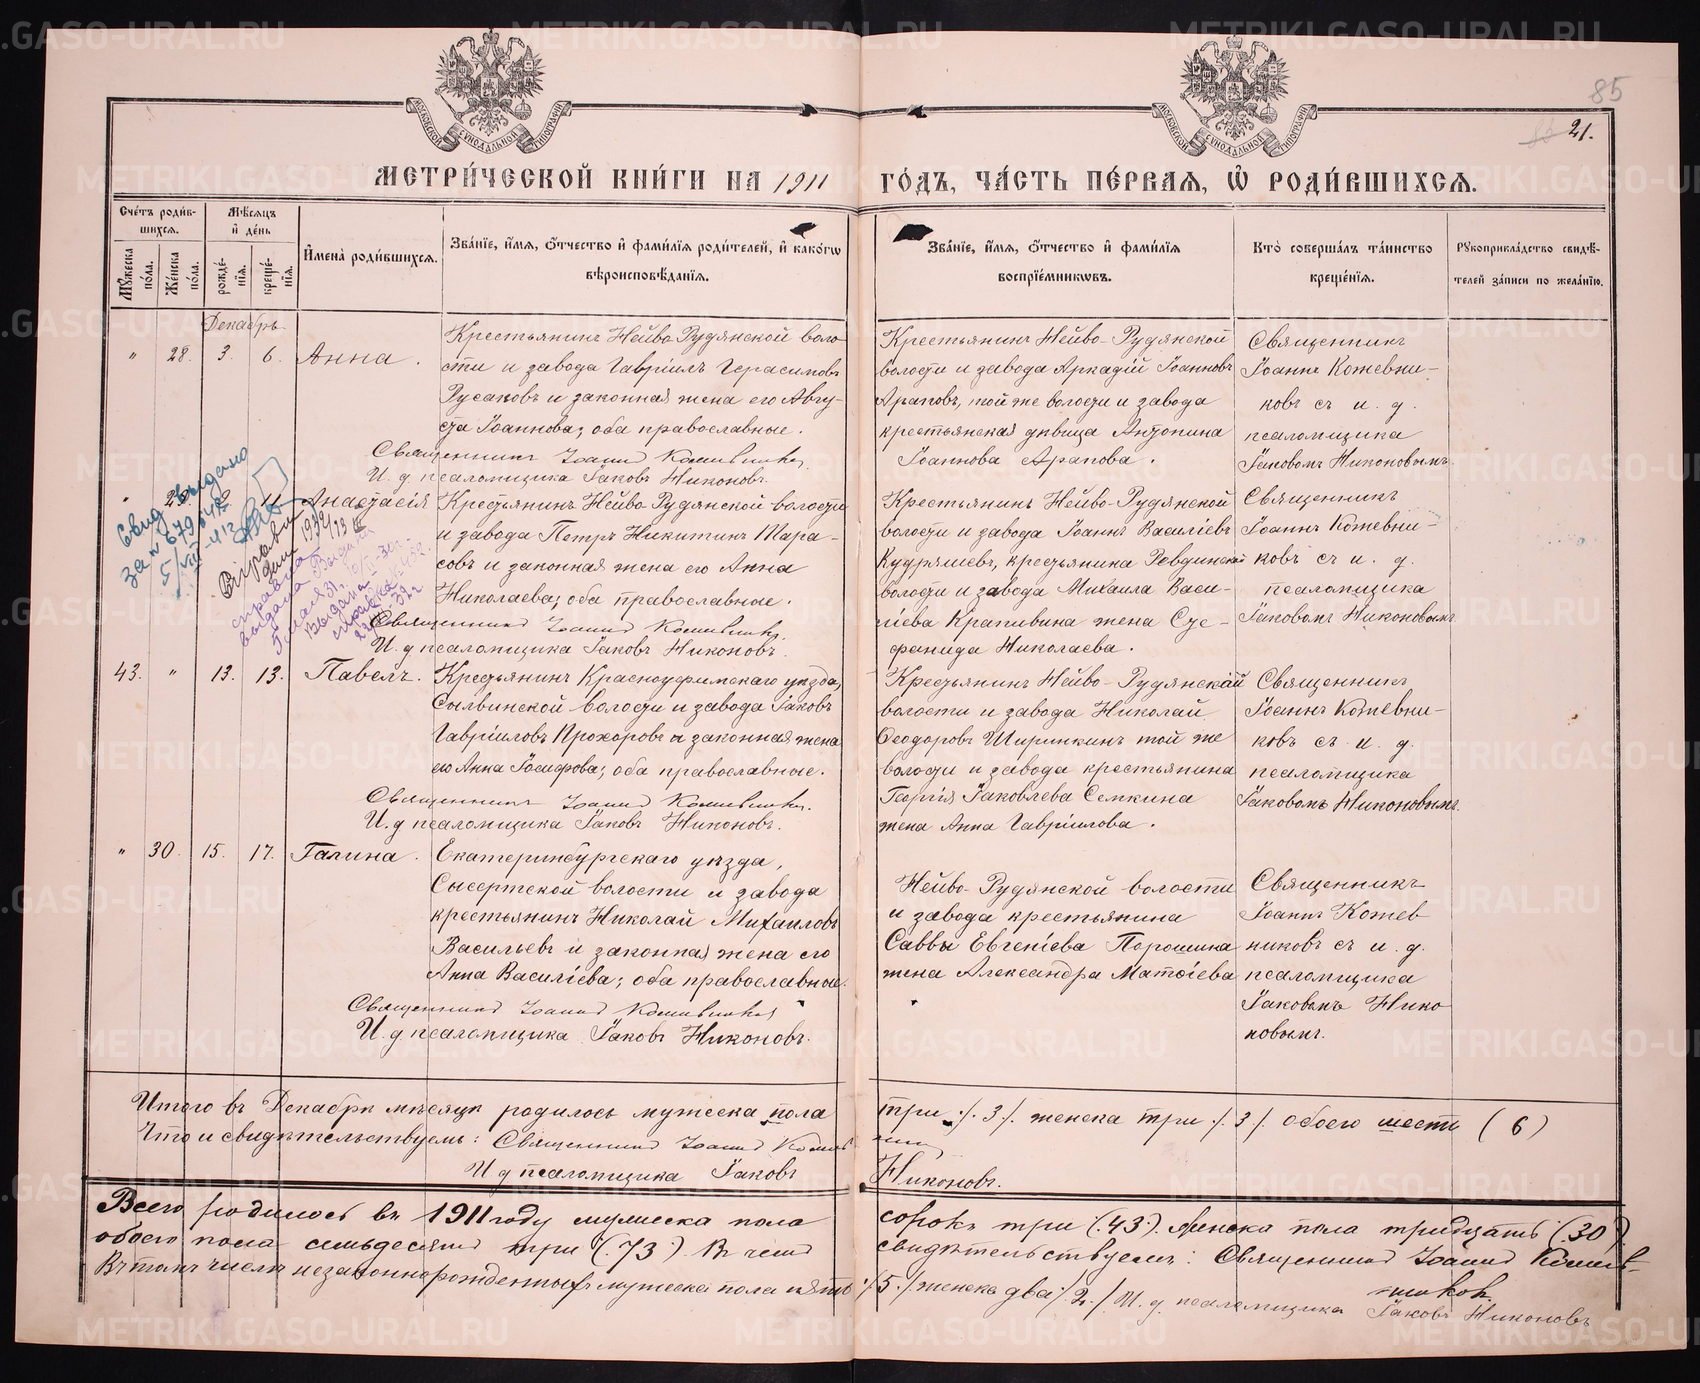 85
21.
МЕТРИ́ЧЕСКОЙ КНИ́ГИ НА 1911
ГО́ДЪ, ЧА́СТЬ ПЕ́РВАЯ, Ѽ РОДИ́ВШИХСЯ.
Сче́тъ роди́в-
шихся.
Мѣ́сяцъ
и҆ де́нь
Мꙋ́жеска по́ла.
Же́нска по́ла.
рожде́-
нїя.
креще́-
нїя.
И҆мена̀ роди́вшихся.
Зва́нїе, и҆́мя, ѻ҆́тчество и҆ фами́лїя роди́телей, и҆ како́гѡ
вѣроисповѣ́данїя.
Зва́нїе, и҆́мя, ѻ҆́тчество и҆ фами́лїя
воспрїе́мникѡвъ.
Кто̀ соверша́лъ та́инство
креще́нїя.
Рꙋкоприкла́дство свидѣ́-
телей за́писи по жела́нїю.
Декабрь
" 28. 3. 6. Анна.
Крестьянинъ Нейво-Рудянской воло-
сти и завода Гавріилъ Герасимовъ
Русаковъ и законная жена его Авгу-
ста Іоаннова; оба православные.
Священникъ Іоаннъ Кожевниковъ.
И. д псаломщика Іаковъ Никоновъ.
Крестьянинъ Нейво-Рудянской
волости и завода Аркадій Іоанновъ
Араповъ, той же волости и завода
крестьянская дѣвица Антонина
Іоаннова Арапова.
Священникъ
Іоаннъ Кожевни-
ковъ съ и. д.
псаломщика
Іаковомъ Никоновымъ.
" 29. 11. Анастасія
Крестьянинъ Нейво-Рудянской волости
и завода Петръ Никитинъ Тара-
совъ и законная жена его Анна
Николаева; оба православные.
Священникъ Іоаннъ Кожевниковъ.
И. д псаломщика Іаковъ Никоновъ.
Крестьянинъ Нейво-Рудянской
волости и завода Іоаннъ Василіевъ
Кудряшевъ, крестьянина Ревдинской
волости и завода Михаила Васи-
ліева Крапивина жена Сте-
фанида Николаева.
Священникъ
Іоаннъ Кожевни-
ковъ съ и. д.
псаломщика
Іаковомъ Никоновымъ
Свид выдано
за № 679642
справка
выдана
43. " 13. 13. Павелъ.
Крестьянинъ Красноуфимскаго уѣзда,
Сылвинской волости и завода Іаковъ
Гавріиловъ Прохоровъ и законная жена
его Анна Іосифова; оба православные.
Священникъ Іоаннъ Кожевниковъ.
И. д псаломщика Іаковъ Никоновъ.
Крестьянинъ Нейво-Рудянской
волости и завода Николай
Ѳеодоровъ Ширинкинъ той же
волости и завода крестьянина
Георгія Іаковлева Семкина
жена Анна Гавріилова.
Священникъ
Іоаннъ Кожевни-
ковъ съ и. д.
псаломщика
Іаковомъ Никоновымъ.
" 30. 15. 17. Галина.
Екатеринбургскаго уѣзда,
Сысертской волости и завода
крестьянинъ Николай Михаиловъ
Васильевъ и законная жена его
Анна Василіева; оба православные.
Священникъ Іоаннъ Кожевниковъ
И. д псаломщика Іаковъ Никоновъ.
Нейво-Рудянской волости
и завода крестьянина
Саввы Евгеніева Порошина
жена Александра Матѳіева
Священникъ
Іоаннъ Кожев
никовъ съ и. д.
псаломщика
Іаковымъ Нико
новымъ.
Итого въ Декабрѣ мѣсяцѣ родилось мужеска пола
три ./. 3 /. женска три ./. 3 /. обоего шесть (6)
Что и свидѣтельствуемъ: Священникъ Іоаннъ Кожев
И д псаломщика Іаковъ
Никоновъ.
Всего родилось въ 1911 году мужеска пола
сорокъ три (.43.). Женска пола тридцать (.30)
обоего пола семьдесятъ три (.73). В чемъ
свидѣтельствуемъ: Священникъ Іоаннъ Кожев-
никовъ.
Въ томъ числѣ незаконнорожденныхъ мужеска пола пять
./5./ женска два /. 2. / И. д. псаломщика Іаковъ Никоновъ
METRIKI.GASO-URAL.RU